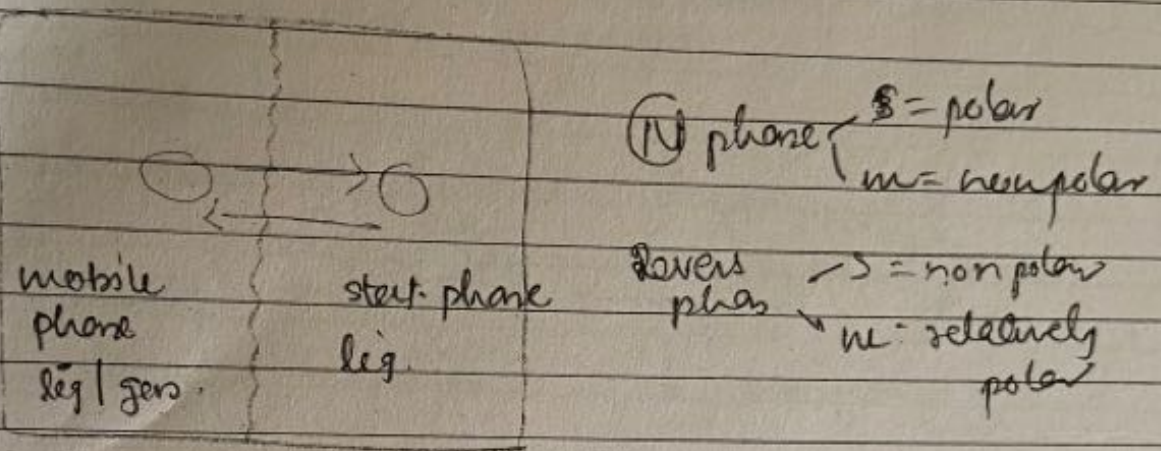 mobile
phase
liq | gas.
stat. phase
liq.
(N) phase
S = polar
m = non polar
Revers
phas
S = non polar
m = relatively
polar